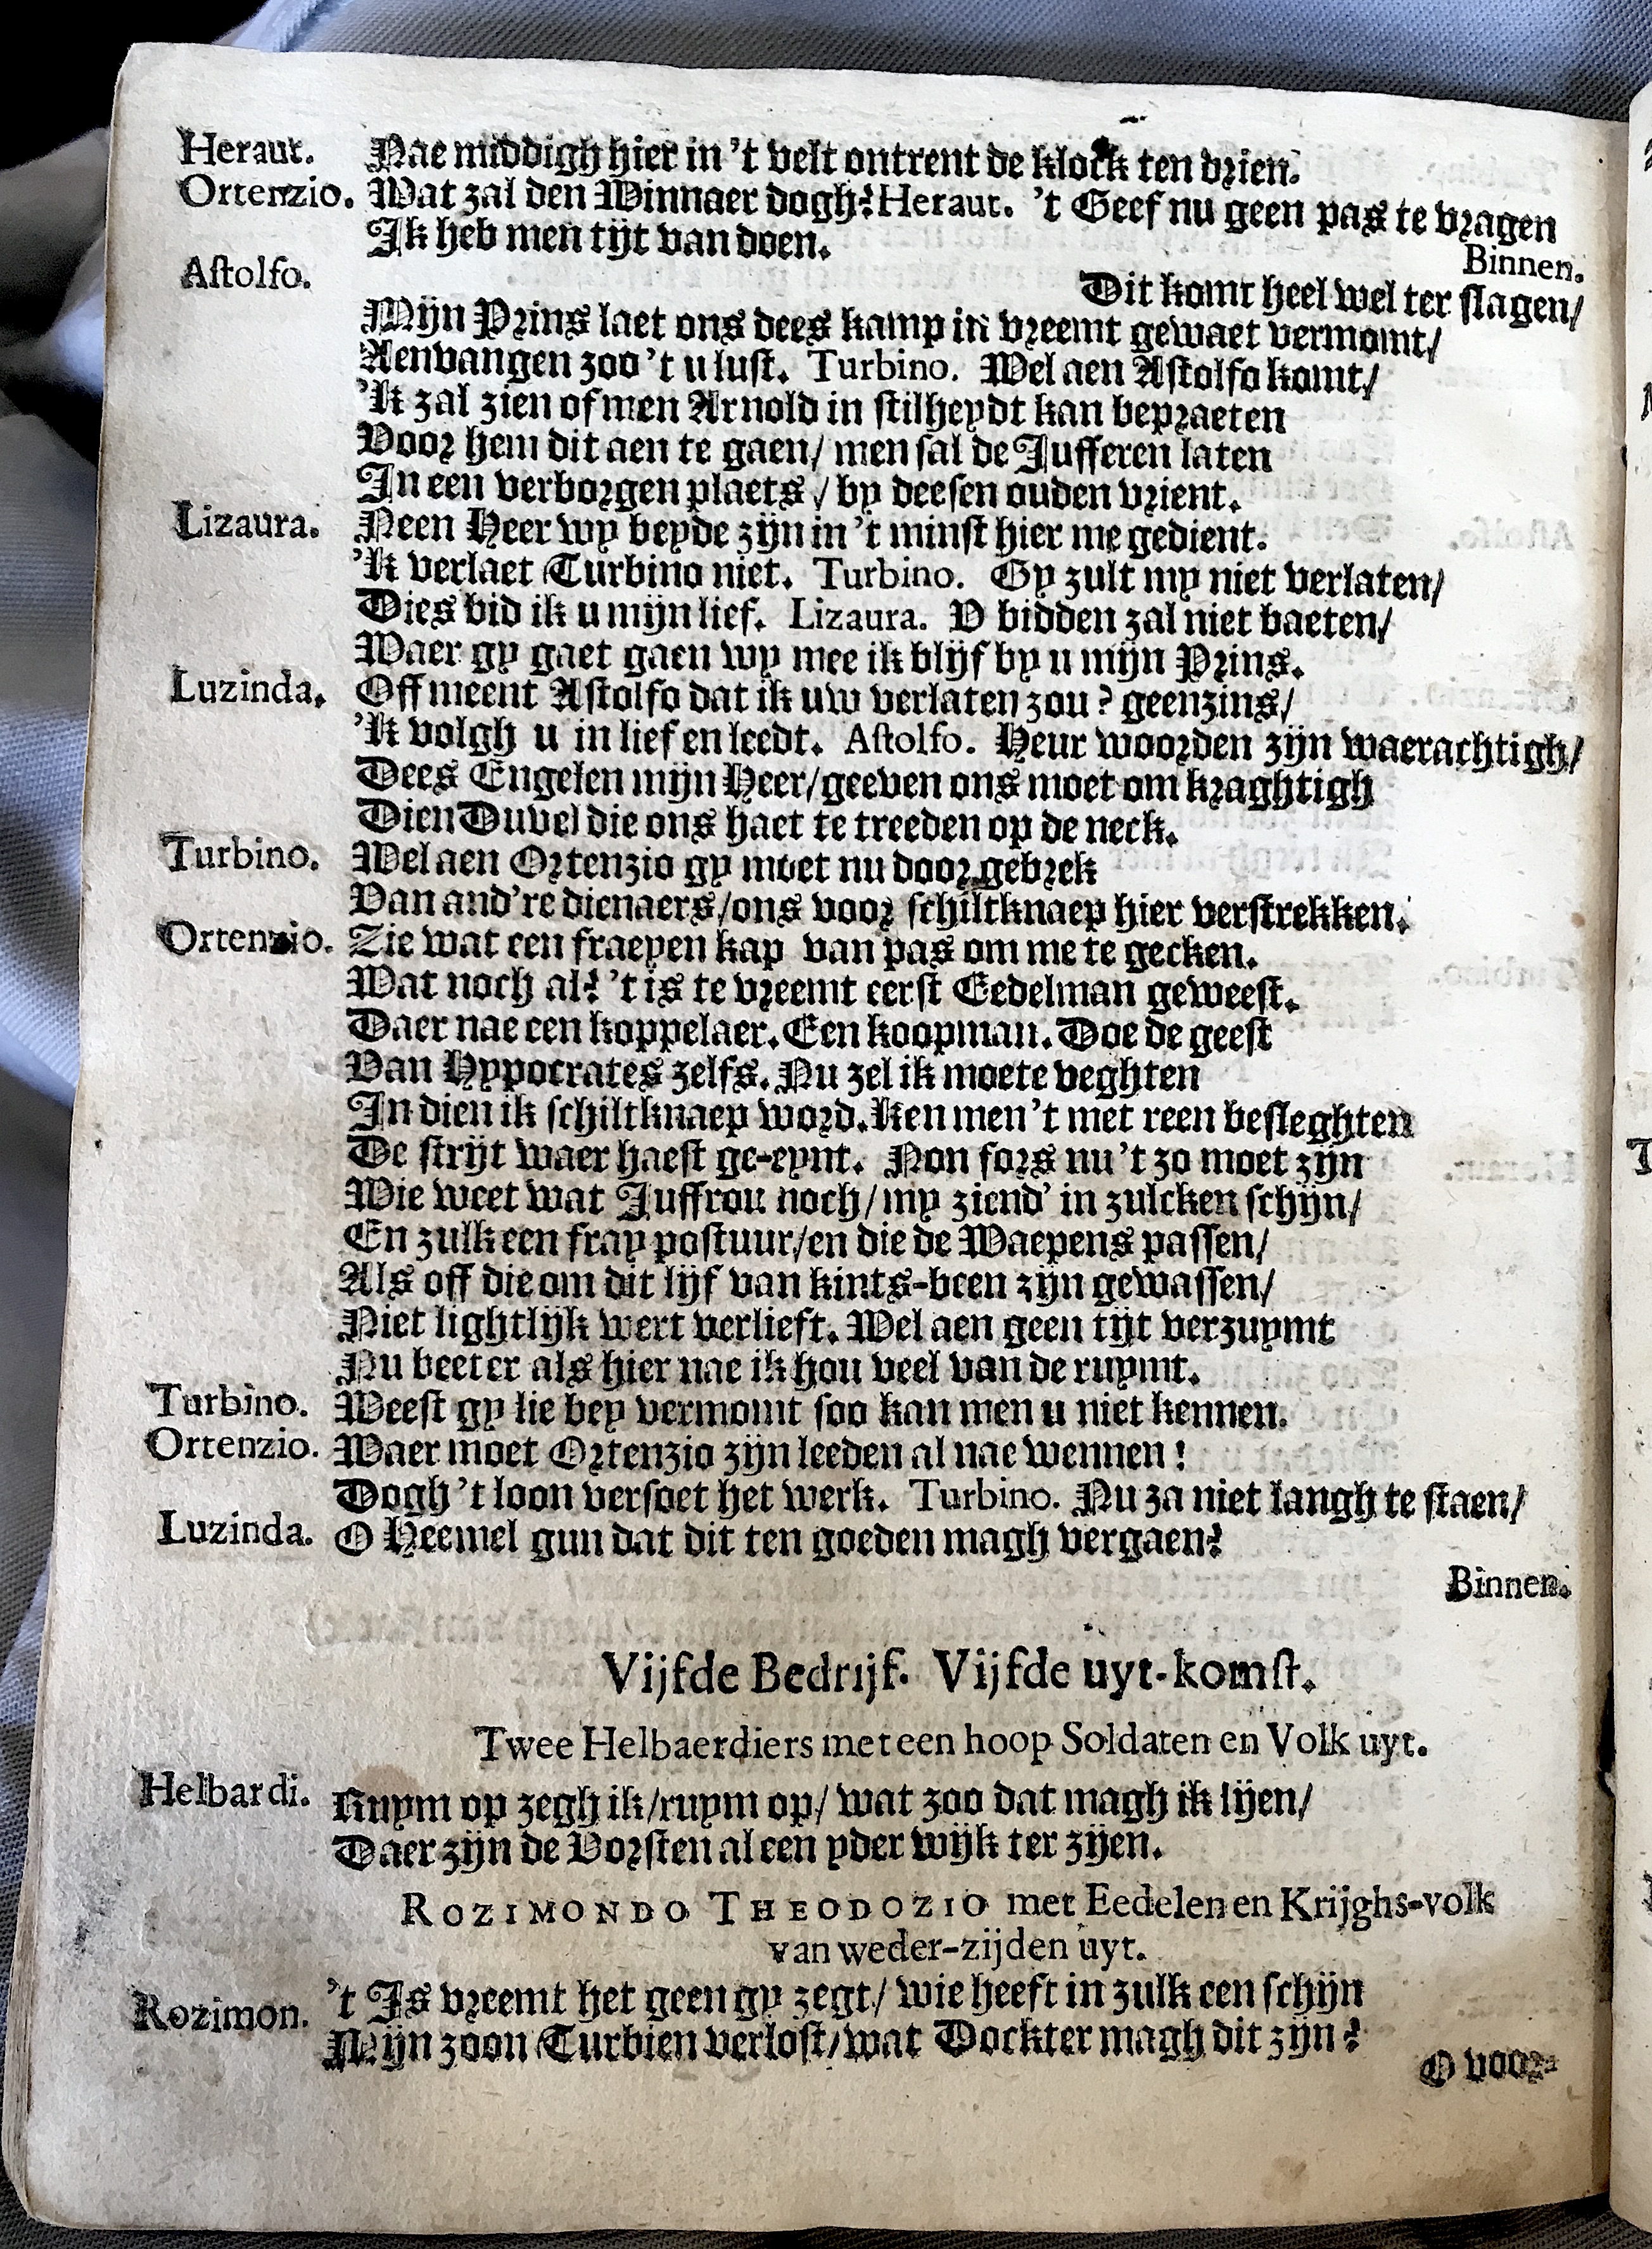 Heraut. Nae middigh hier in 't velt ontrent de klock ten drien.
Ortenzio. Wat zal den Winnaer dogh? Heraut. 't Geef nu geen pas te vragen
Ik heb men tijt van doen.
Binnen.
Astolfo. Dit komt heel wel ter slagen/
Mijn Prins laet ons dees kamp in vreemt gewaet vermomt/
Aenvangen zoo 't u lust. Turbino. Wel aen Astolfo komt/
'k zal zien of men Arnold in stilheydt kan bepraeten
Voor hem dit aen te gaen/ men sal de Jufferen laten
In een verborgen plaets / by deesen ouden vrient.
Lizaura. Neen Heer wy beyde zijn in 't minst hier me gedient.
'k verlaet Turbino niet. Turbino. Gy zult my niet verlaten/
Dies bid ik u mijn lief. Lizaura. V bidden zal niet baeten/
Waer gy gaet gaen wy mee ik blijf by u mijn Prins.
Luzinda. Off meent Astolfo dat ik uw verlaten zou? geenzins/
'k volgh u in lief en leedt. Astolfo. Heur woorden zijn waerachtigh/
Dees Engelen mijn Heer/geeven ons moet om kraghtigh
Dien Duvel die ons haet te treeden op de neck.
Turbino. Wel aen Ortenzio gy moet nu door gebrek
Van and're dienaers/ons voor schiltknaep hier verstrekken.
Ortenzio. Zie wat een fraeyen kap van pas om me te gecken.
Wat noch al? 't is te vreemt eerst Eedelman geweest.
Daer nae een koppelaer. Een koopman. Doe de geest
Van Hypocrates zelfs. Nu zel ik moete veghten
In dien ik schiltknaep word. Ken men 't met reen besleghten
De strijt waer haest ge-eynt. Non fors nu 't zo moet zijn
Wie weet wat Juffrou noch/ my ziend' in zulcken schijn/
En zulk een fray postuur/en die de Waepens passen/
Als off die om dit lijf van kints-been zijn gewassen/
Niet lightlijk wert verlieft. Wel aen geen tijt verzuymt
Nu beeter als hier nae ik hou veel van de ruymt.
Turbino. Weest gy lie bey vermomt soo kan men u niet kennen.
Ortenzio. Waer moet Ortenzio zijn leeden al nae wennen!
Dogh 't loon versoet het werk. Turbino. Nu za niet langh te staen/
Luzinda. O Heemel gun dat dit ten goeden magh vergaen?
Binnen.
Vijfde Bedrijf. Vijfde uyt-komst.
Twee Helbaerdiers met een hoop Soldaten en Volk uyt.
Helbardi. Ruym op zegh ik/ruym op/ wat zoo dat magh ik lijen/
Daer zijn de Vorsten al een yder wijk ter zijen.
ROZIMONDO THEODOZIO met Eedelen en Krijghs-volk
van weder-zijden uyt.
Rozimon. 't Is vreemt het geen gy zegt/ wie heeft in zulk een schijn
Mijn zoon Turbien verlost/wat Dockter magh dit zijn?
O voor-